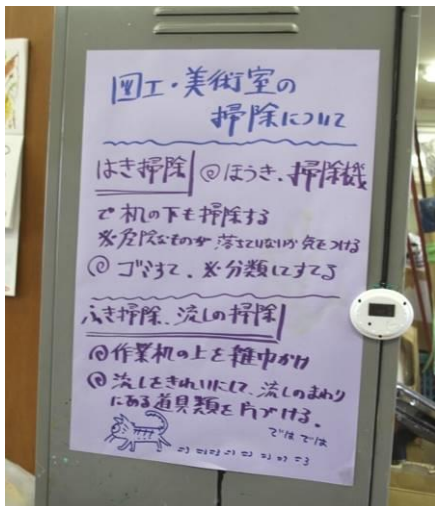 図工・美術室の
掃除について
はき掃除 @ほうき、掃除機
で机の下も掃除する
※危険なものが落ちていないか気をつける
@ゴミすて、※分類してすてる
ふき掃除、流しの掃除
@作業机の上を雑巾がけ
@流しをきれいにして、流しのまわり
にある道具類を片づける。
ではでは